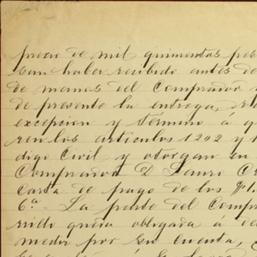 precio de mil quinientos pes
san haber recibido antes de
de manos del Comprador
de presente la entrega, re
excepcion y termino á q
ren los articulos 1202 y 1
digo Civil y otorgan en
Comprador D.
carta de pago de los
6ª La parte del Comp
rillo queda obligada á
medir por su cuenta,